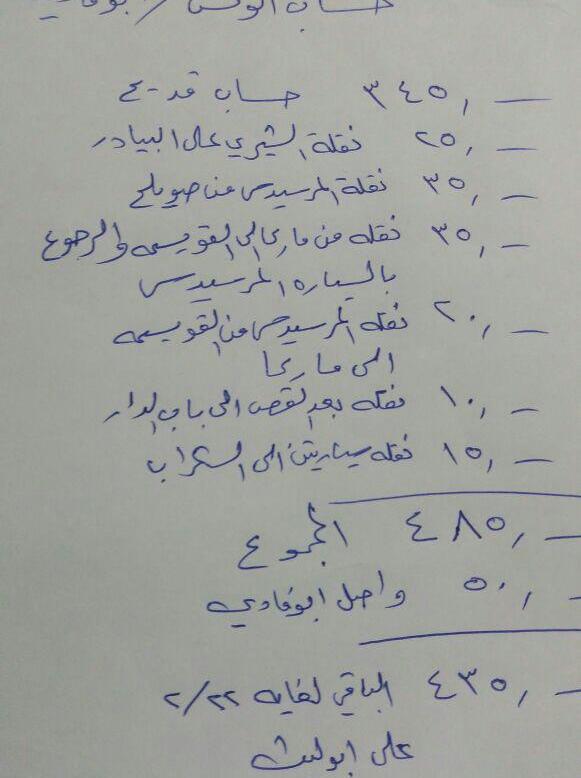 حساب الونش / ابوفادي
— ٣٤٥٫ حساب قديم
— ٢٥٫ نقلة الشيري عال البيادر
— ٣٥٫ نقلة المرسيدس من صويلح
— ٣٥٫ نقله من ماركا الى القويسمه والرجوع
بالسياره المرسيدس
— ٢٠٫ نقله المرسيدس من القويسمه
الى ماركا
— ١٠٫ نقله بعد القص الى باب الدار
— ١٥٫ نقله سيارتين الى السكراب
— ٤٨٥٫ المجموع
— ٥٠٫ واصل ابوفادي
— ٤٣٥٫ الباقي لغايه ٢/٢٢
على ابوليث